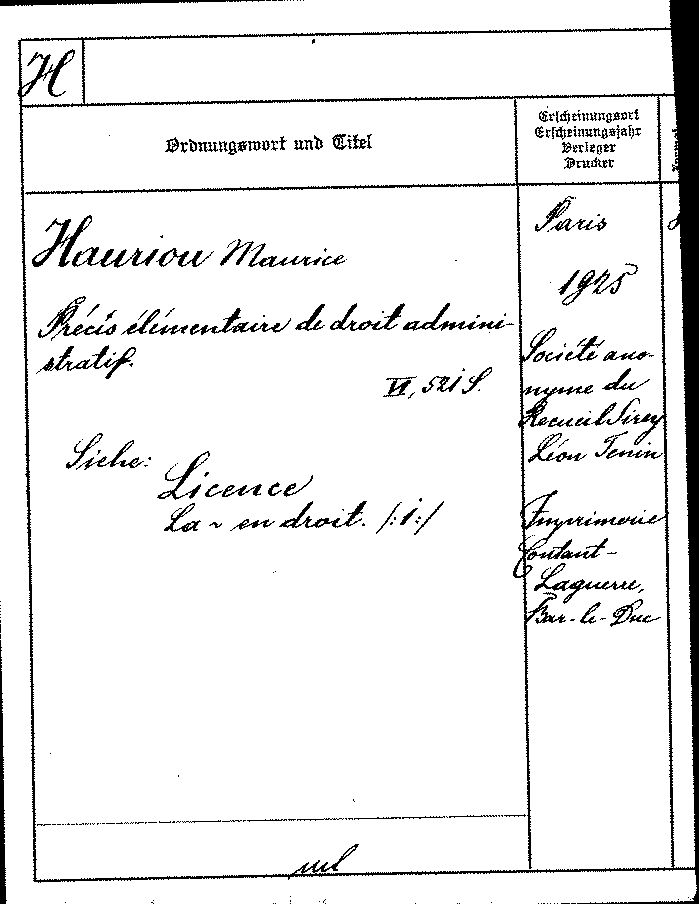 H
Ordnungswort und Titel
Erscheinungsort
Erscheinungsjahr
Verleger
Drucker
Hauriou Maurice
Précis élémentaire de droit admini-
stratif.
VI, 521 S.
Siehe:
Licence
La ~ en droit. /:1:/
Paris
1925
Société ano-
nyme du
Recueil Sirey
Léon Tenin
Imprimerie
Contant-
Laguerre,
Bar-le-Duc